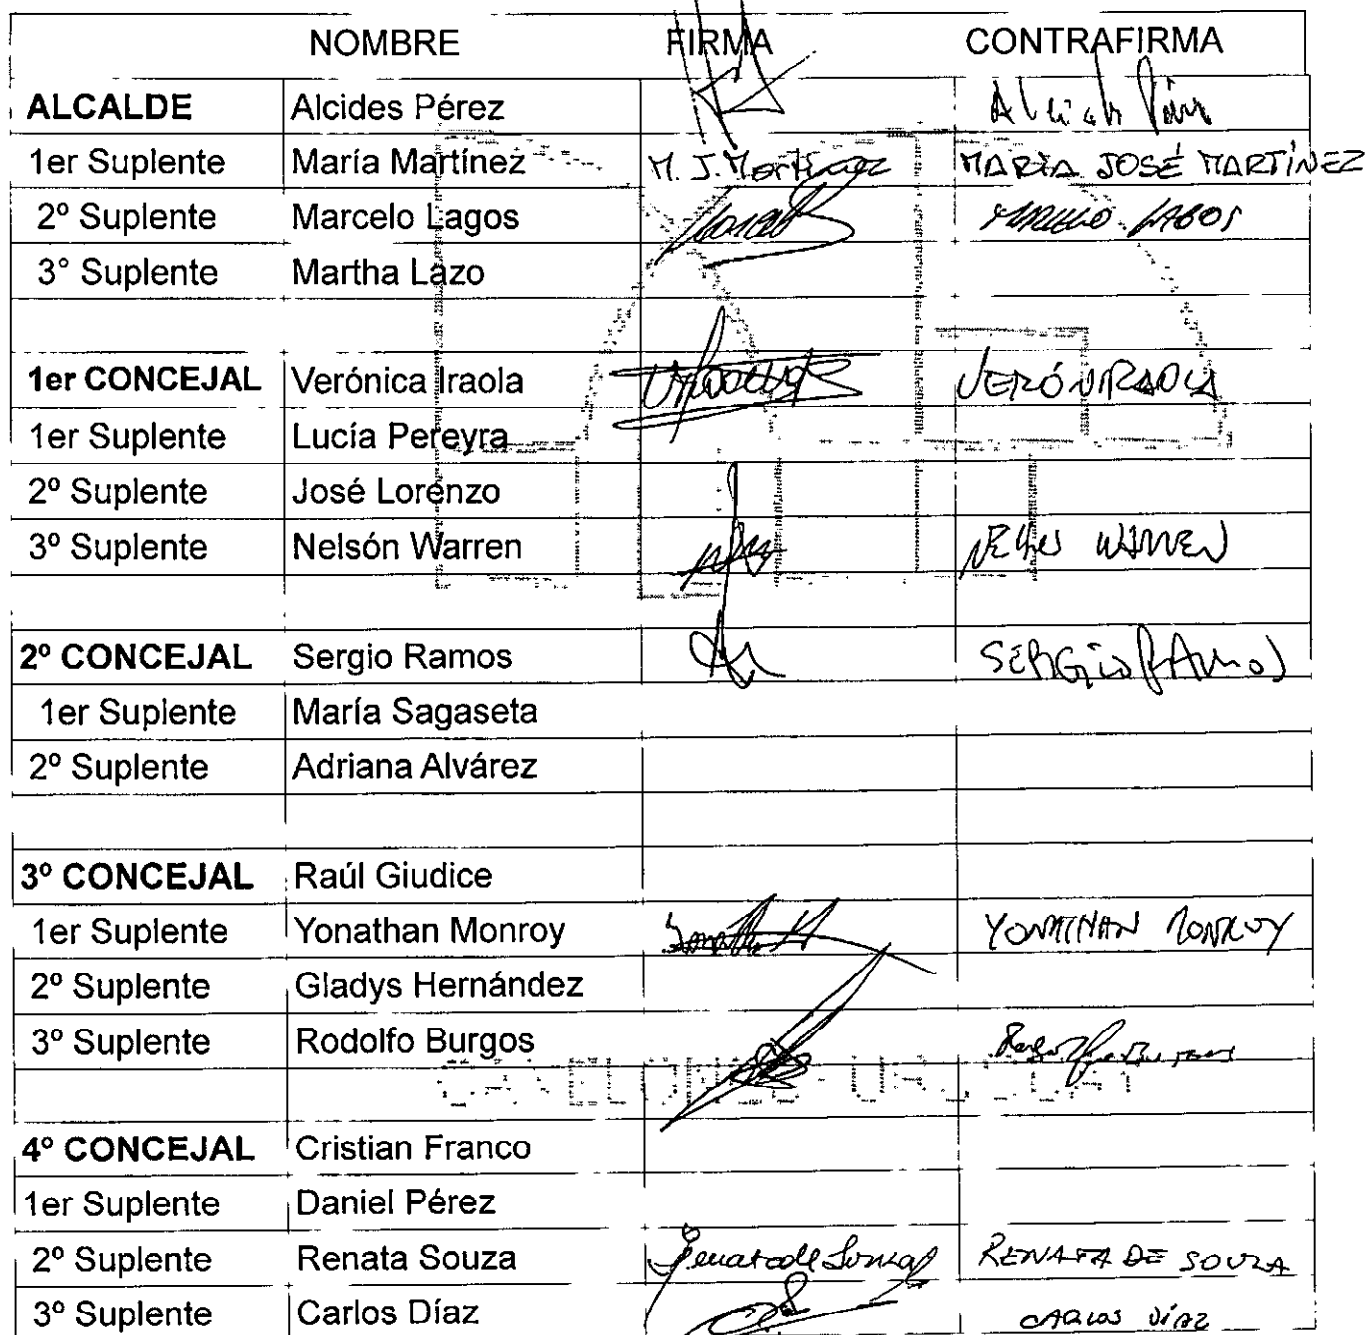 NOMBRE FIRMA CONTRAFIRMA
ALCALDE Alcides Pérez
1er Suplente María Martínez M. J. Martínez MARÍA JOSÉ MARTÍNEZ
2º Suplente Marcelo Lagos MARCELO LAGOS
3° Suplente Martha Lazo
1er CONCEJAL Verónica Iraola VERÓNIRAOLA
1er Suplente Lucía Pereyra
2º Suplente José Lorenzo
3º Suplente Nelsón Warren WARREN
2º CONCEJAL Sergio Ramos SERGIO RAMOS
1er Suplente María Sagaseta
2º Suplente Adriana Alvárez
3º CONCEJAL Raúl Giudice
1er Suplente Yonathan Monroy YONATHAN MONROY
2º Suplente Gladys Hernández
3º Suplente Rodolfo Burgos
CANELONES - URUGUAY
4º CONCEJAL Cristian Franco
1er Suplente Daniel Pérez
2º Suplente Renata Souza Renata de Souza RENATA DE SOUZA
3º Suplente Carlos Díaz CARLOS DÍAZ